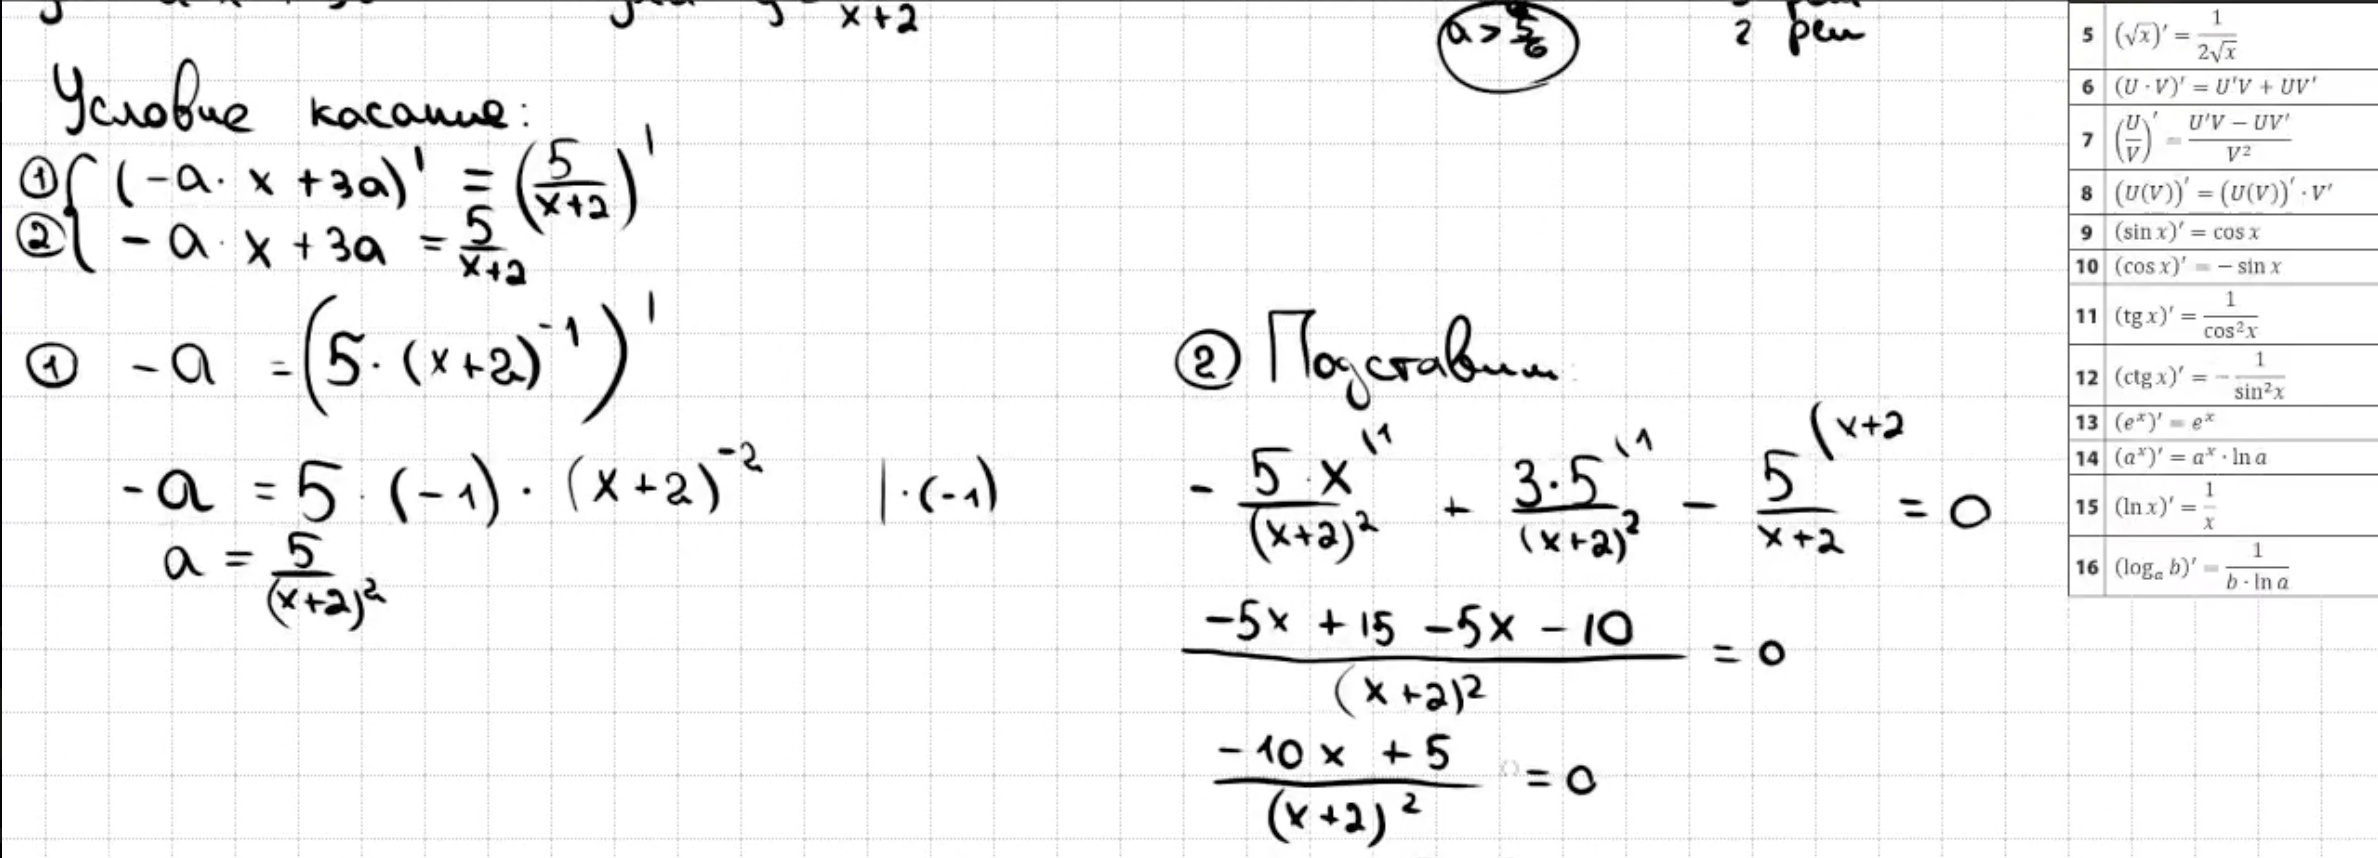 x+2
a >
2 реш
Условие касание:
① { (-a · x + 3a)' = (5/(x+2))'
② { -a · x + 3a = 5/(x+2)
① -a = (5 · (x+2)⁻¹)'
-a = 5 · (-1) · (x+2)⁻² | · (-1)
a = 5/(x+2)²
② Подставим:
- 5·x⁽¹/(x+2)² + 3·5⁽¹/(x+2)² - 5⁽ˣ⁺²/(x+2) = 0
(-5x + 15 - 5x - 10)/(x+2)² = 0
(-10x + 5)/(x+2)² = 0
5 (√x)' = 1/(2√x)
6 (U · V)' = U'V + UV'
7 (U/V)' = (U'V − UV')/V²
8 (U(V))' = (U(V))' · V'
9 (sin x)' = cos x
10 (cos x)' = − sin x
11 (tg x)' = 1/cos²x
12 (ctg x)' = − 1/sin²x
13 (eˣ)' = eˣ
14 (aˣ)' = aˣ · ln a
15 (ln x)' = 1/x
16 (logₐ b)' = 1/(b · ln a)